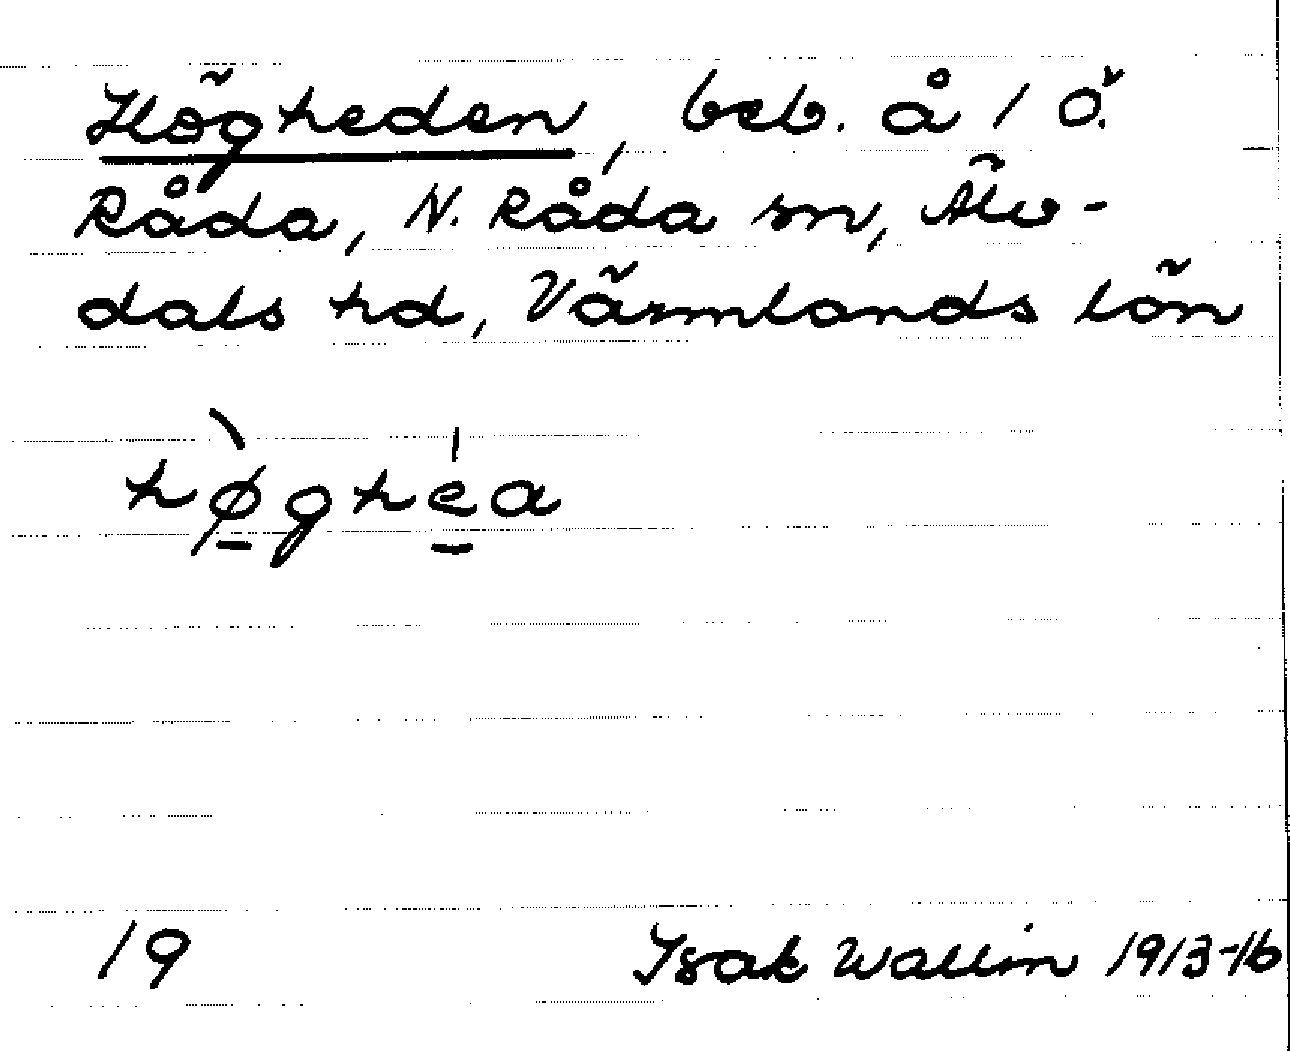 Högheden, beb. å 1 Ö.
Råda, N. Råda sn, Älv-
dals hd, Värmlands län
hø̀ghéa
19
Isak Wallin 1913-16